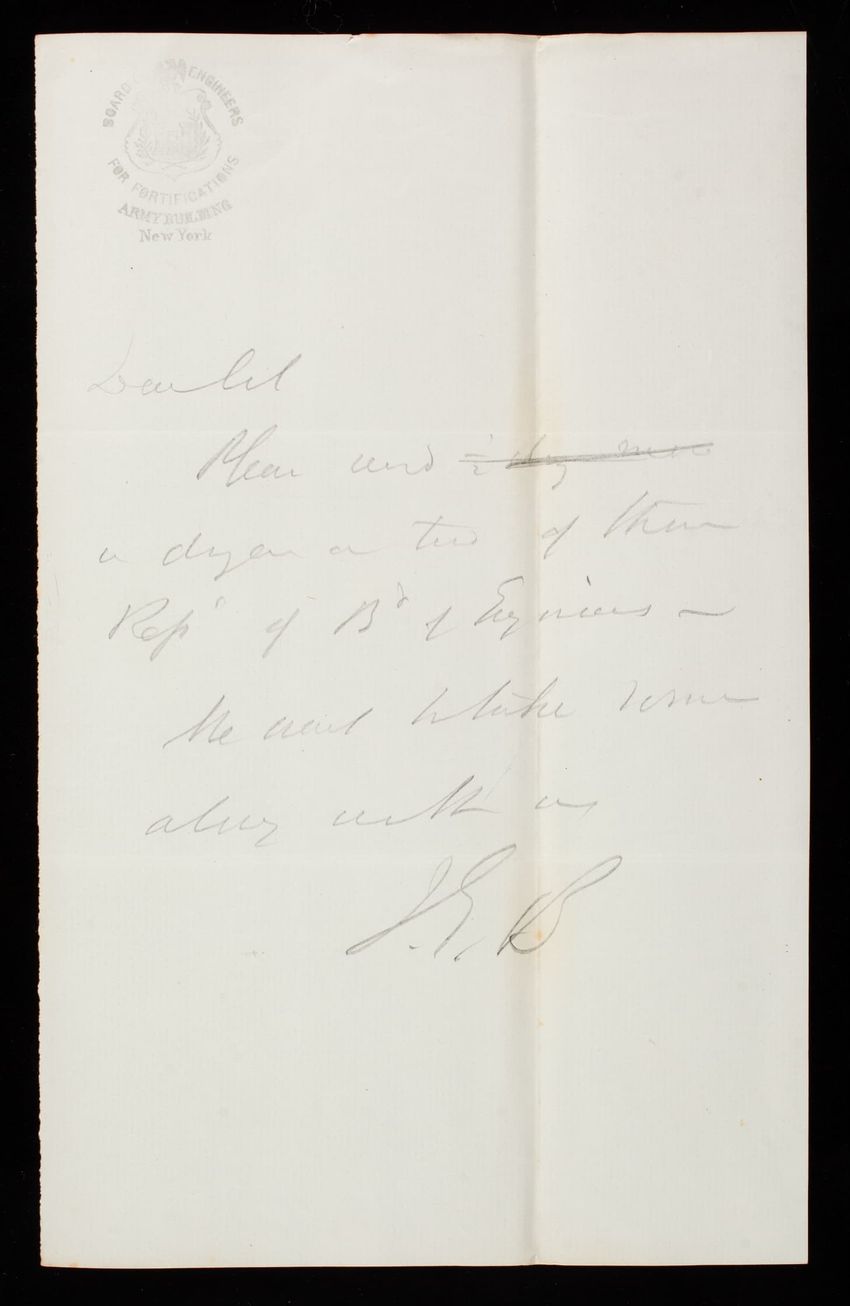 BOARD OF ENGINEERS
FOR FORTIFICATIONS
ARMY BUILDING
New York
Dear Col
Please send ½
a dozen or two of these
Repᵗ of Bᵈ of Engineers –
We want to take some
along with us
J. G. B